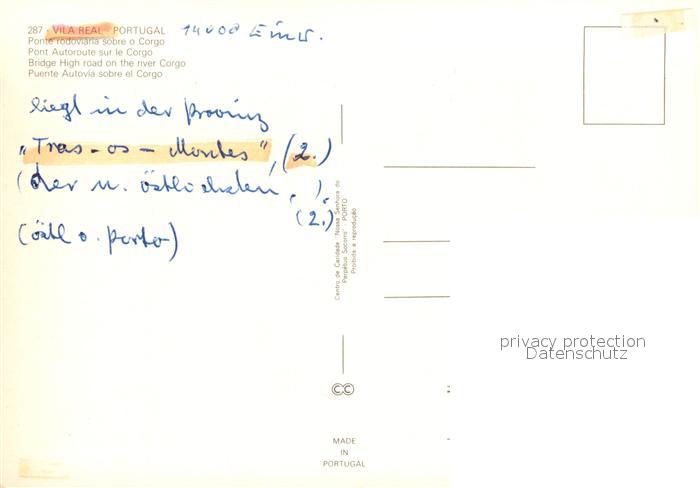 287 - VILA REAL - PORTUGAL
14000 Einw.
Ponte rodoviária sobre o Corgo
Pont Autoroute sur le Corgo
Bridge High road on the river Corgo
Puente Autovia sobre el Corgo
liegt in der Provinz
"Tras-os-Montes", (2.)
(der n. östlichsten, ).
(2.)
(östl o. Porto)
Centro de Caridade "Nossa Senhora do
Perpétuo Socorro" PORTO
Proibida a reprodução
CC
MADE
IN
PORTUGAL
privacy protection
Datenschutz